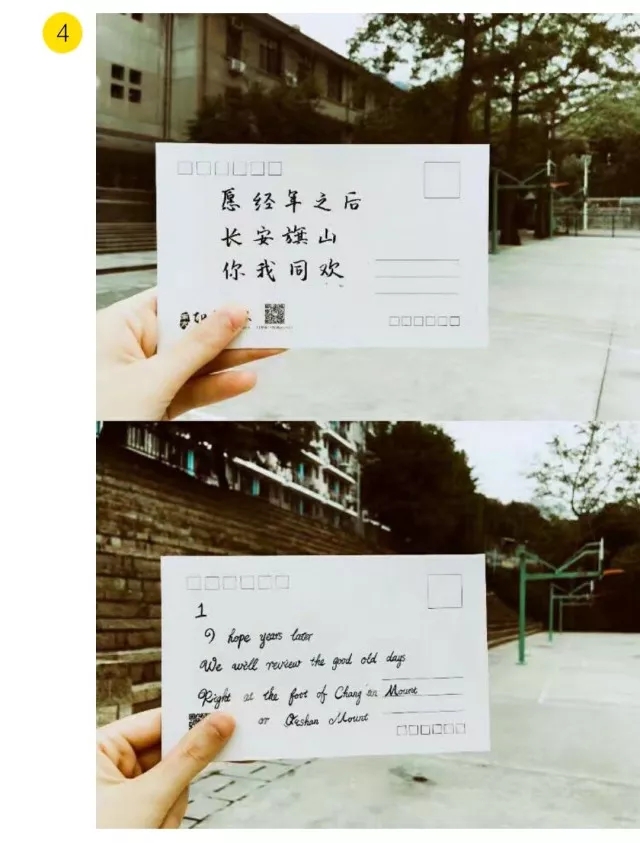 4
愿经年之后
长安旗山
你我同欢
1
I hope years later
We will review the good old days
Right at the foot of Chang'an Mount
or Qishan Mount